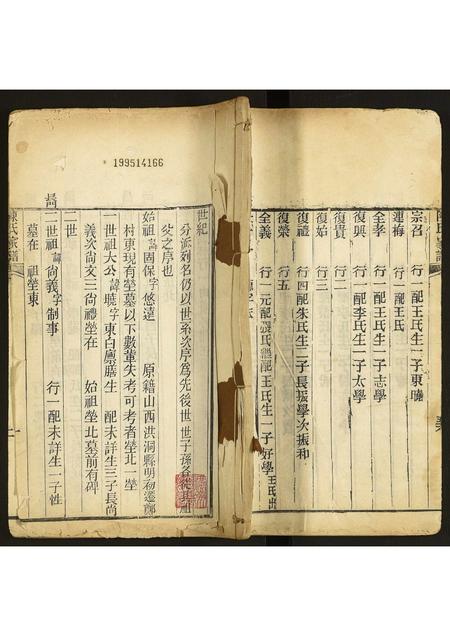 199514166
宗召 行一配王氏生一子東曉
連梅 行一配王氏
全孝 行一配王氏生一子志學
復興 行一配李氏生一子太學
復貴 行一
復始 行二
復禮 行四配朱氏生二子長振學次振和
復榮 行五
全義 行一元配氏繼配王氏生一子好學王氏出
世紀
分派列名仍以世系次序為先後世世子孫各從其祖
之序也
始祖諱固保字悠遠 原籍山西洪洞縣明初遷
村東現有塋墓以下數輩失考可考者塋北一塋
一世祖大公諱曉字東白廩膳生 配未詳生三子長尚
義次尚文三尚禮塋在 始祖塋北墓前有碑
二世
二世祖諱尚義字制事 行一配未詳生一子性
墓在 祖塋東
陳氏家譜